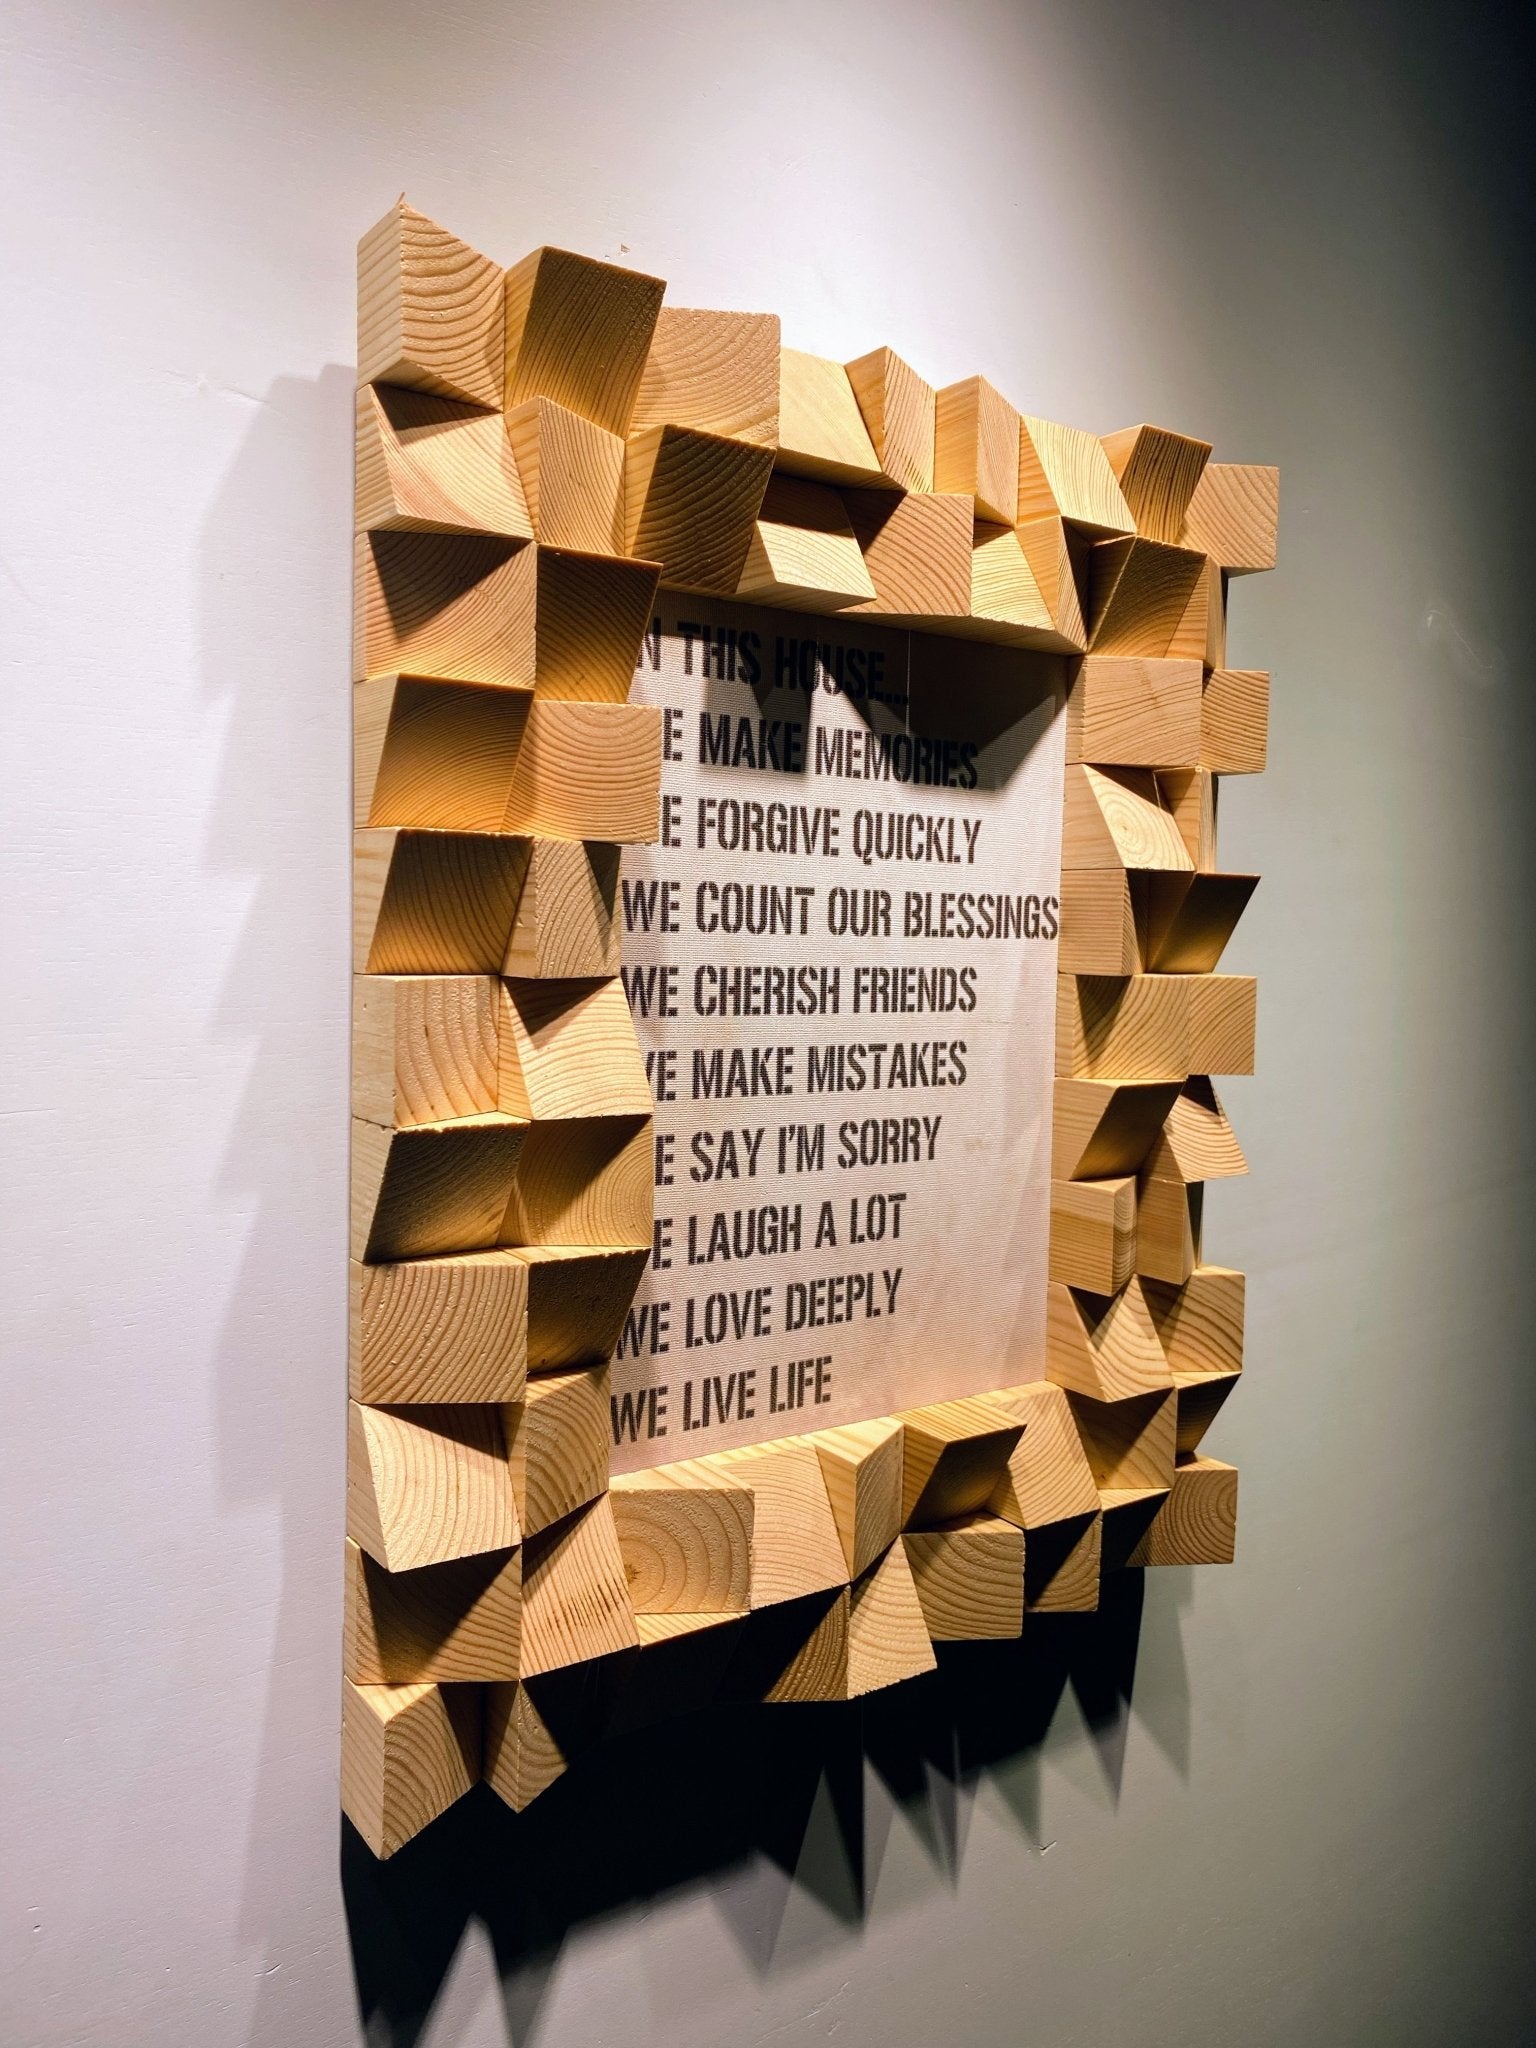 IN THIS HOUSE...
WE MAKE MEMORIES
WE FORGIVE QUICKLY
WE COUNT OUR BLESSINGS
WE CHERISH FRIENDS
WE MAKE MISTAKES
WE SAY I'M SORRY
WE LAUGH A LOT
WE LOVE DEEPLY
WE LIVE LIFE